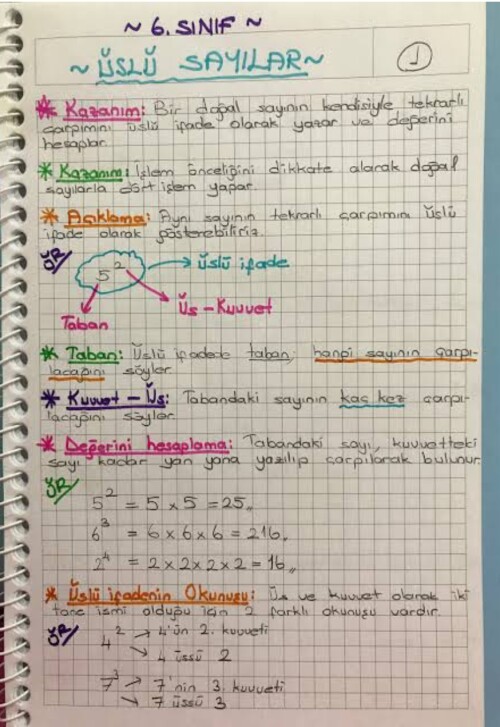 ~ 6. SINIF ~
~ ÜSLÜ SAYILAR ~
1
* Kazanım: Bir doğal sayının kendisiyle tekrarlı
çarpımını üslü ifade olarak yazar ve değerini
hesaplar.
* Kazanım: İşlem önceliğini dikkate alarak doğal
sayılarla dört işlem yapar.
* Açıklama: Aynı sayının tekrarlı çarpımını üslü
ifade olarak gösterebiliriz.
ÖR/
5² → üslü ifade
Üs - Kuvvet
Taban
* Taban: Üslü ifadede taban, hangi sayının çarpı-
lacağını söyler.
* Kuvvet - Üs: Tabandaki sayının kaç kez çarpı-
lacağını söyler.
* Değerini hesaplama: Tabandaki sayı, kuvvetteki
sayı kadar yan yana yazılıp çarpılarak bulunur.
ÖR/
5² = 5 x 5 = 25,,
6³ = 6 x 6 x 6 = 216,,
2⁴ = 2 x 2 x 2 x 2 = 16,,
* Üslü ifadenin Okunuşu: Üs ve kuvvet olarak iki
tane ismi olduğu için 2 farklı okunuşu vardır.
ÖR/
4² → 4'ün 2. kuvveti
→ 4 üssü 2
7³ → 7'nin 3. kuvveti
→ 7 üssü 3